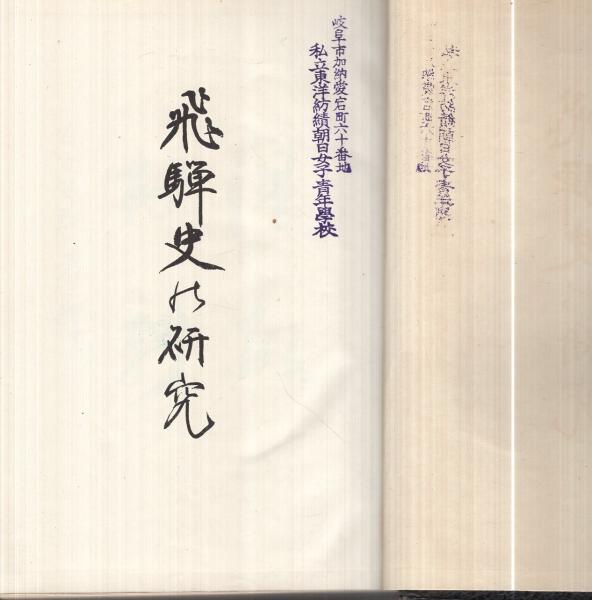 岐阜市加納愛宕町六十番地
私立東洋紡績朝日女子青年學校
飛騨史の研究